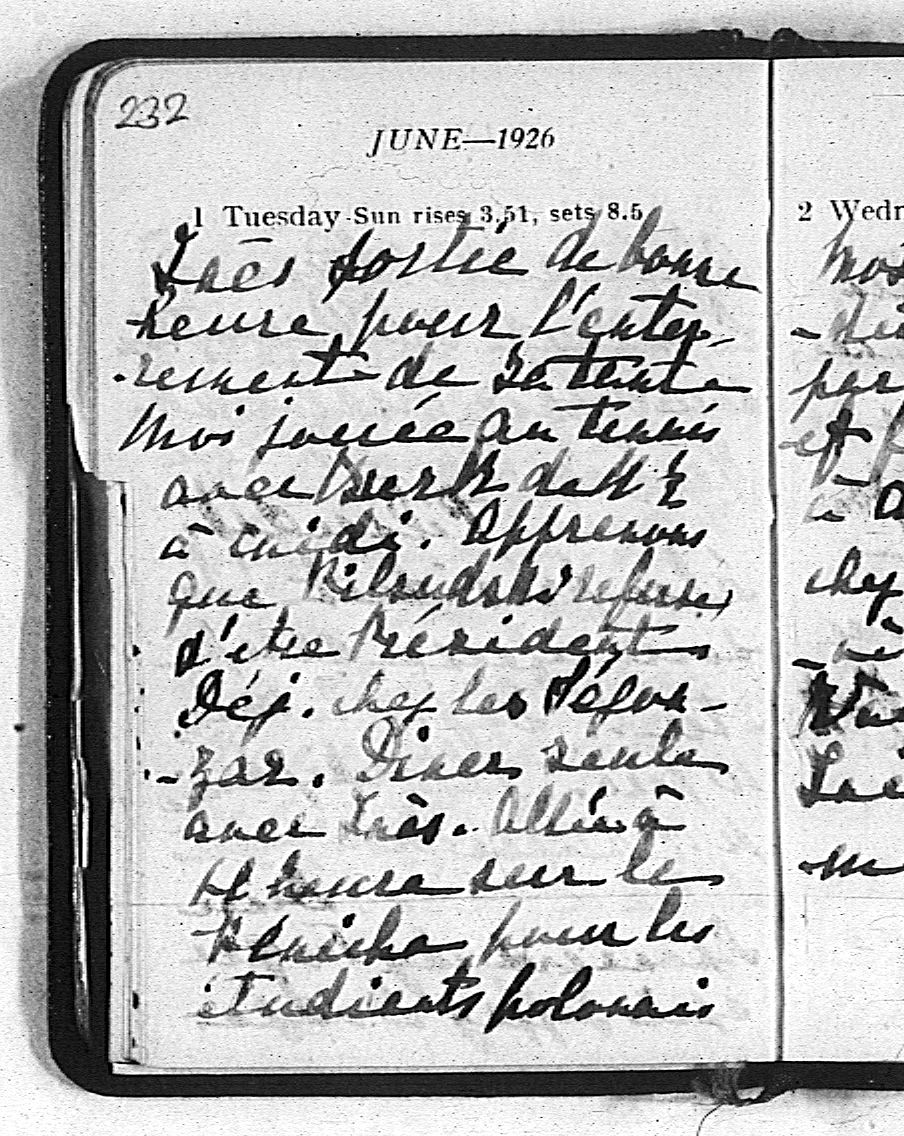 232
JUNE—1926
1 Tuesday-Sun rises 3.51, sets 8.5
Inès sortie de bonne
heure pour l'enter-
-rement de sa tante
Moi jouée au tennis
avec de 11 ½
à midi. Apprenons
que Pilsudski refuse
d'être Président
Déj. chez les
-zar. Diner seule
avec Inès. Allée à
heure sur le
pour les
étudiants polonais
2 Wedn
Moi
par
et f
à a
chez
Inè